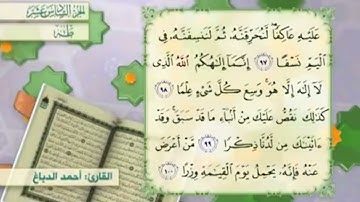 الجزء السادس عشر
طه
عَلَيْهِ عَاكِفًا لَّنُحَرِّقَنَّهُۥ ثُمَّ لَنَنسِفَنَّهُۥ فِى
ٱلْيَمِّ نَسْفًا ٩٧ إِنَّمَآ إِلَـٰهُكُمُ ٱللَّهُ ٱلَّذِى
لَآ إِلَـٰهَ إِلَّا هُوَ وَسِعَ كُلَّ شَىْءٍ عِلْمًا ٩٨
كَذَٰلِكَ نَقُصُّ عَلَيْكَ مِنْ أَنۢبَآءِ مَا قَدْ سَبَقَ وَقَدْ
ءَاتَيْنَـٰكَ مِن لَّدُنَّا ذِكْرًا ٩٩ مَّنْ أَعْرَضَ
عَنْهُ فَإِنَّهُۥ يَحْمِلُ يَوْمَ ٱلْقِيَـٰمَةِ وِزْرًا ١٠٠
القارئ: أحمد الدباغ